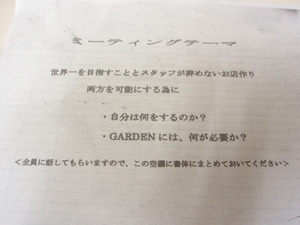 ミーティングテーマ
世界一を目指すこととスタッフが辞めないお店作り
両方を可能にする為に
・自分は何をするのか?
・GARDENには、何が必要か?
<全員に話してもらいますので、この空欄に書体にまとめておいてください>